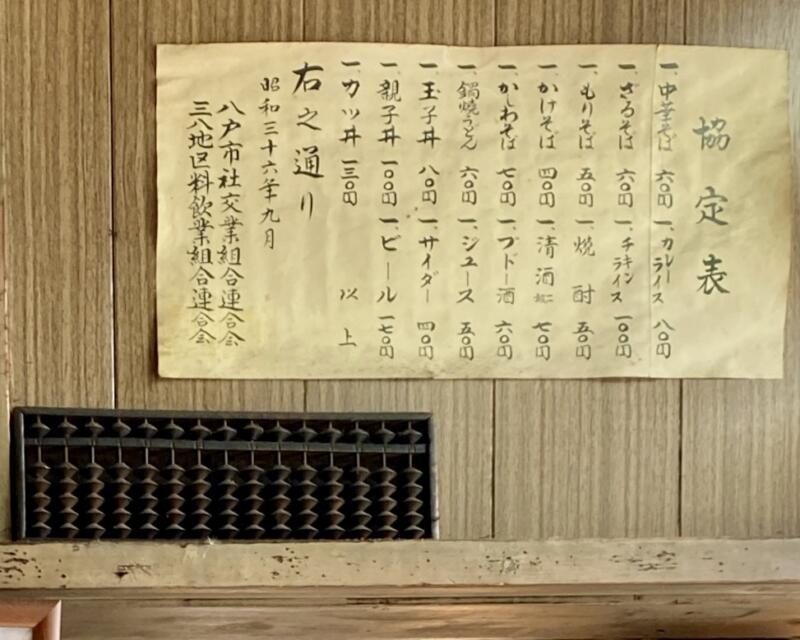 協定表
一、中華そば 六〇円
一、カレーライス 八〇円
一、ざるそば 六〇円
一、チキンライス 一〇〇円
一、もりそば 五〇円
一、焼酎 五〇円
一、かけそば 四〇円
一、清酒 七〇円
一、かしわそば 七〇円
一、ブドー酒 六〇円
一、鍋焼うどん 六〇円
一、ジュース 五〇円
一、玉子丼 八〇円
一、サイダー 四〇円
一、親子丼 一〇〇円
一、ビール 一七〇円
一、カツ丼 一三〇円
以上
右之通り
昭和三十六年九月
八戸市社交業組合連合会
三八地区料飲業組合連合会